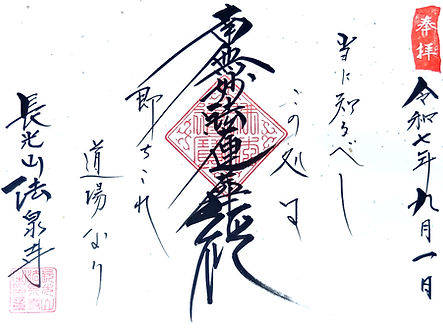 奉拝
令和七年九月一日
当に知るべし
この処は
南無妙法蓮華経
即ちこれ
道場なり
長光山法泉寺